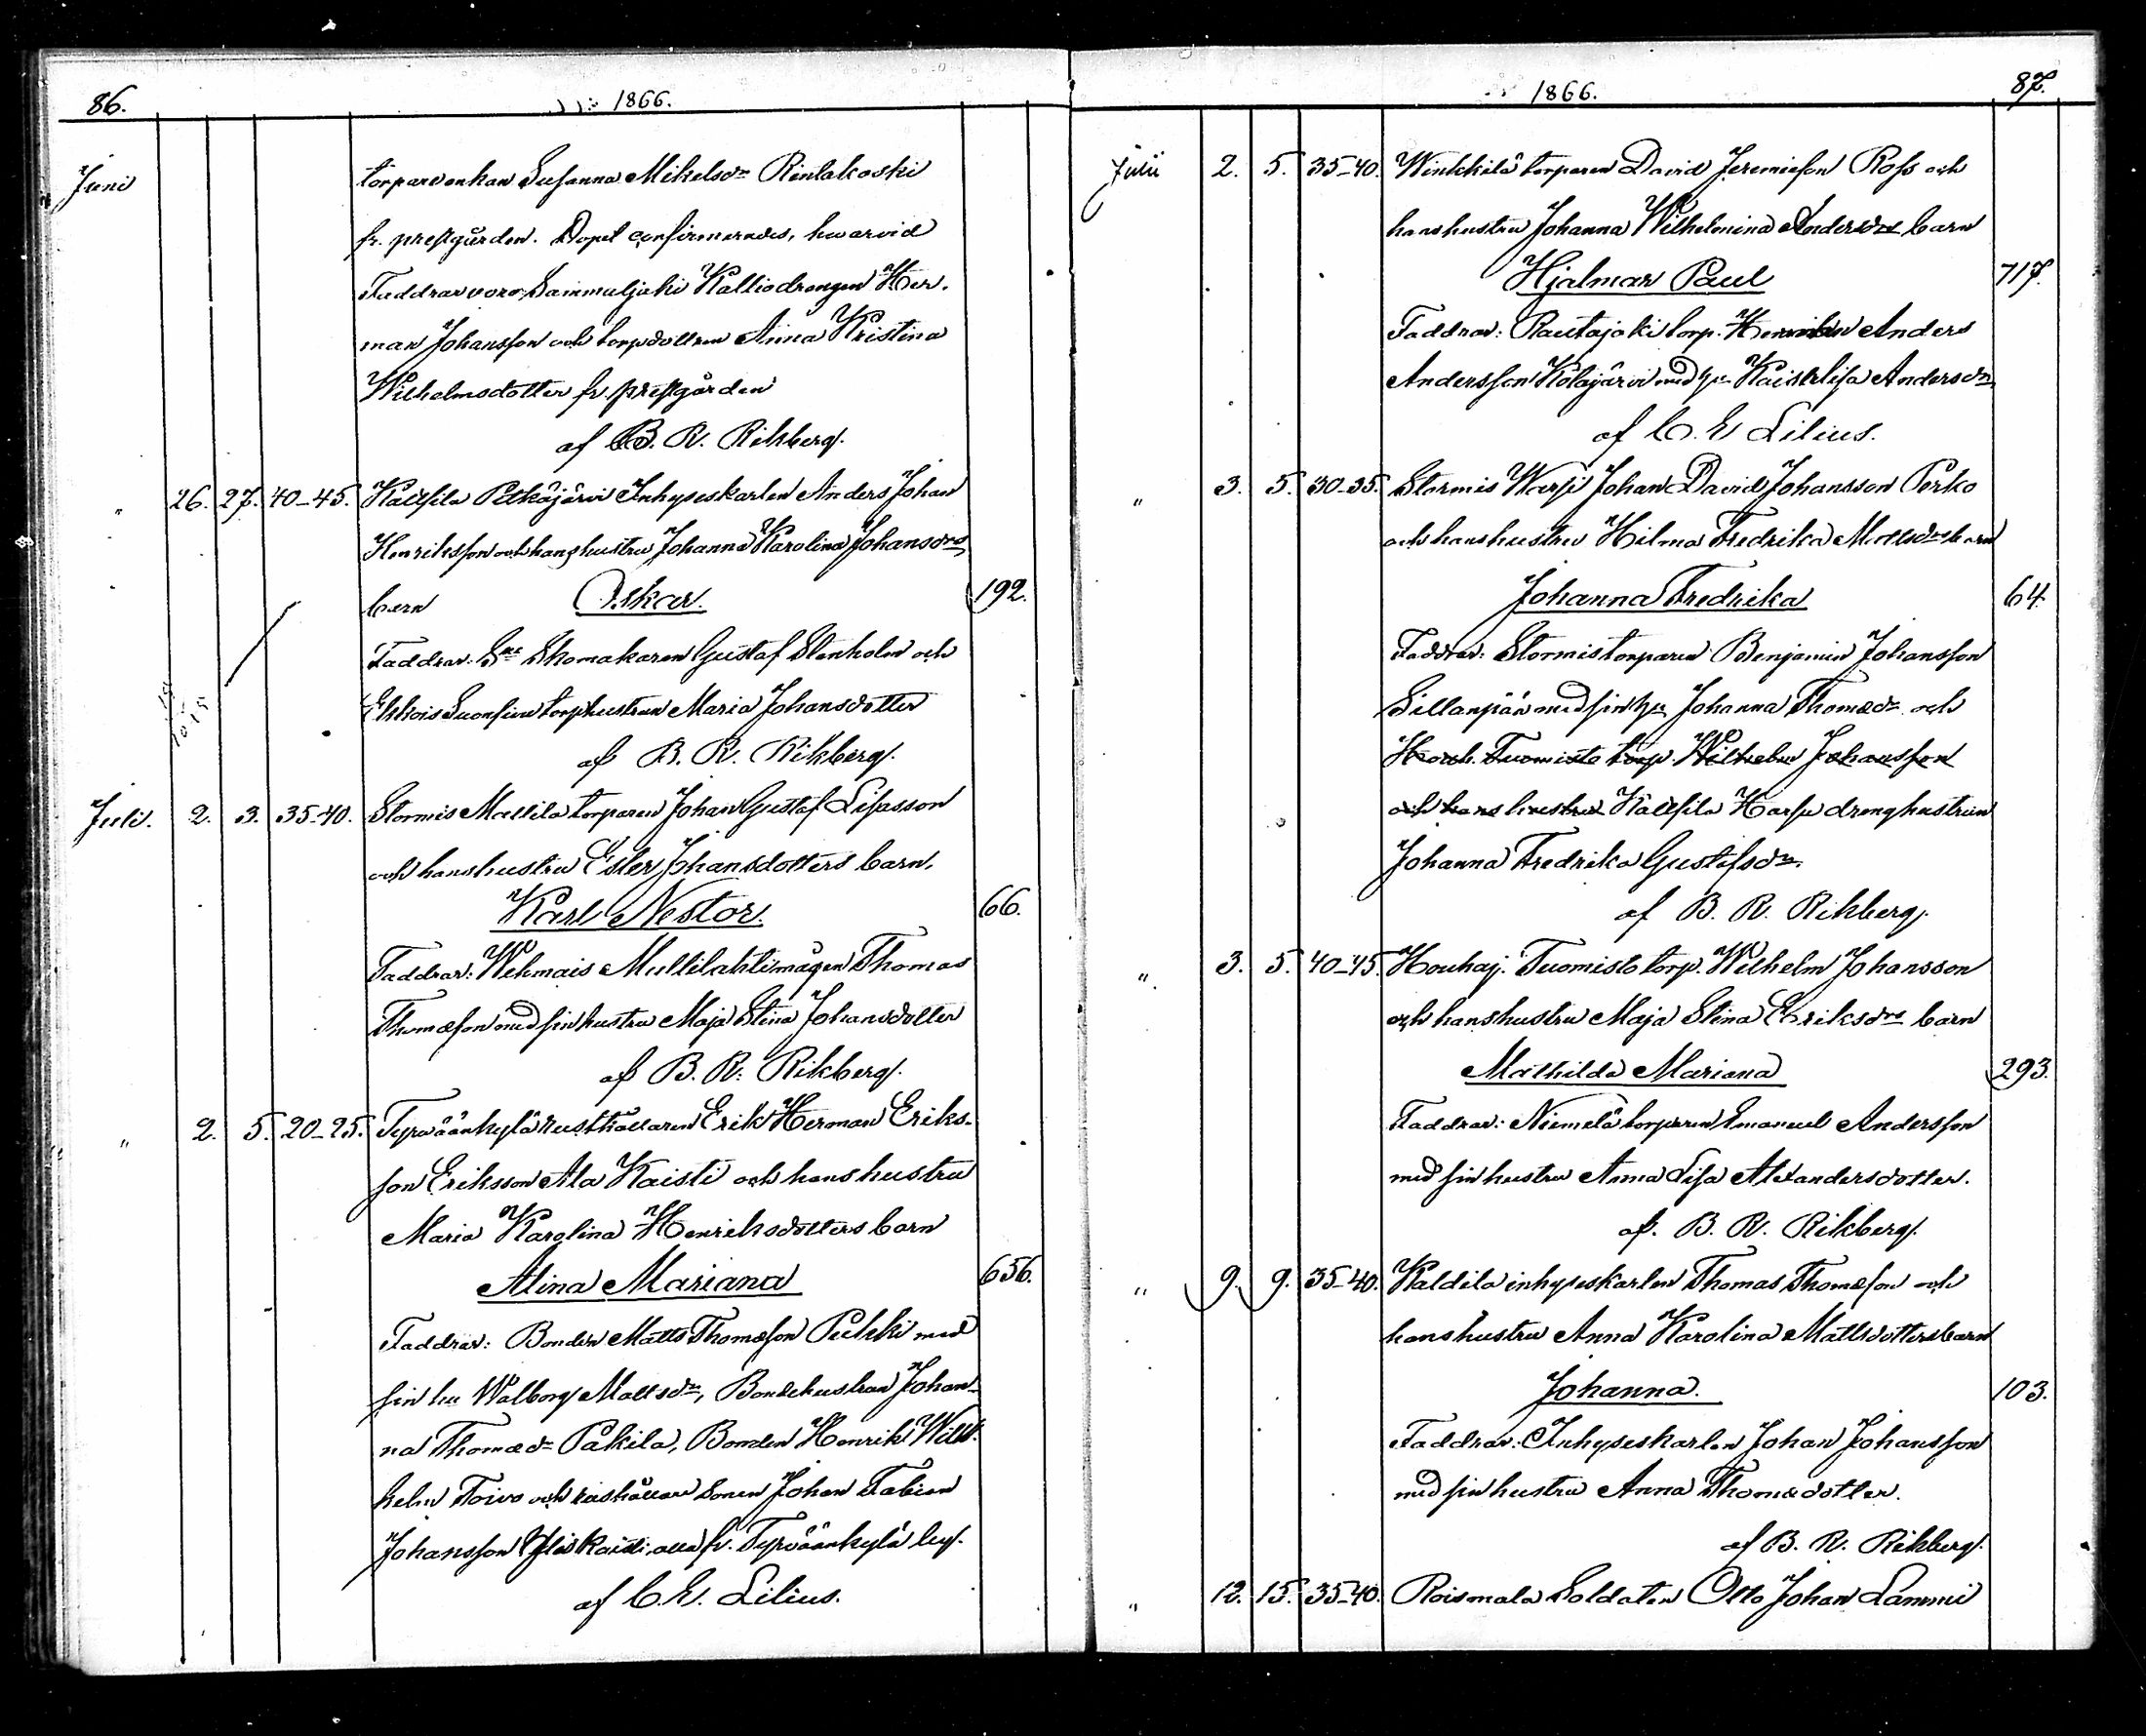 86. 1866.
Juni torparenkan Susanna Mikelsdr Rintakoski
fr. prestgården. Dopet confirmerades, hvarvid
Faddrar voro Sammaljoki Kallio drengen Her-
man Johansson och torpdottren Anna Kristina
Wilhelmsdotter fr. prestgården
af B. R. Rikberg.
" 26. 27. 40-45. Kaltsila Petkäjärvi Inhyseskarlen Anders Johan
Henriksson och hans hustru Johanna Karolina Johansdrs
barn Oskar. 192.
Faddrar: Skomakaren Gustaf Stenholm och
Ekkois torphustrun Maria Johansdotter
af B. R. Rikberg.
Juli. 2. 3. 35-40. Stormis Mattila torparen Johan Gustaf Lisasson
och hans hustru Ester Johansdotters barn.
Karl Nestor. 66.
Faddrar: Wehmais Multilahti mågen Thomas
Thomæson med sin hustru Maja Stina Johansdotter
af B. R. Rikberg.
" 2. 5. 20-25. Tyrväänkylä rusthållaren Erik Herman Eriks-
son Eriksson Ala Kaisti och hans hustru
Maria Karolina Henriksdotters barn
Alina Mariana 656.
Faddrar: Bonden Matts Thomæson Puhki med
sin hu Walborg Mattsdr, Bondehustrun Johan-
na Thomædr Pakila, Bonden Henrik Will-
helm Toivo och rusthållare sonen Johan Fabian
Johansson Yli Kaisti, alla fr. Tyrväänkylä by.
af C. E. Lilius.
1866. 87.
Julii 2. 5. 35-40. Winkkilä torparen David Jeremieson Ross och
hans hustru Johanna Wilhelmina Andersdrs barn
Hjalmar Paul 717.
Faddrar: Rautajoki torp. Anders
Andersson Kolajärvi med hu Kaisa Lisa Andersdr
af C. E. Lilius.
" 3. 5. 30-35. Stormis Warji Johan David Johansson Perko
och hans hustru Hilma Fredrika Mattsdrs barn
Johanna Fredrika 64.
Faddrar: Stormis torparen Benjamin Johansson
Sillanpää med sin hu Johanna Thomædr och
Houh. Tuomisto torp. Wilhelm Johansson
och hans hustru Kaltsila Harju drenghustrun
Johanna Fredrika Gustafsdr.
af B. R. Rikberg.
" 3. 5. 40-45. Houhaj. Tuomisto torp. Wilhelm Johansson
och hans hustru Maja Stina Eriksdrs barn
Mathilda Mariana 293.
Faddrar: Niemelä torparen Emanuel Andersson
med sin hustru Anna Lisa Alexandersdotter.
af B. R. Rikberg.
" 9. 9. 35-40. Kaldila inhyseskarlen Thomas Thomæson och
hans hustru Anna Karolina Mattsdotters barn
Johanna. 103.
Faddrar: Inhyseskarlen Johan Johansson
med sin hustru Anna Thomædotter.
af B. R. Rikberg.
" 12. 15. 35-40. Roismala Soldaten Otto Johan Lammi